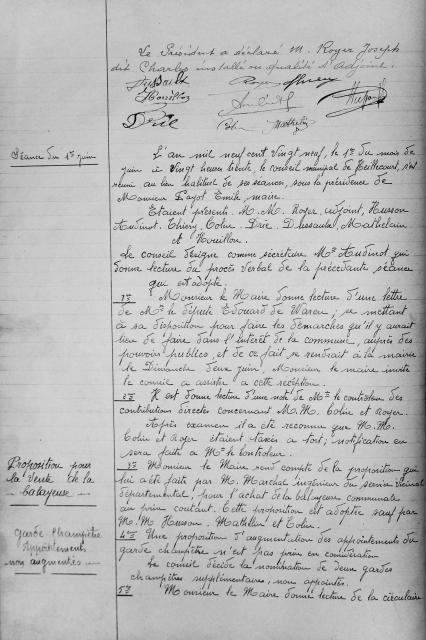 Le Président a déclaré M. Roger Joseph
dit Charles installé en qualité d'Adjoint.
Séance du 1er juin
L'an mil neuf cent vingt neuf, le 1er du mois de
juin à vingt heures trente, le conseil municipal de s'est
réuni au lieu habituel de ses séances, sous la présidence de
Monsieur Payot Emile maire.
Etaient présents. M. M. Roger, adjoint, Husson
Audinot. Thiéry Colin. Drié. Dussaulx, Mathelain
et Houillon.
Le conseil désigne comme sécrétaire Mr Audinot qui
donne lecture du procès verbal de la précédante séance
qui est adopté.
1º Monsieur le Maire donne lecture d'une lettre
de Mr le député Edouard de Waren; se mettant
à sa disposition pour faire les démarches qu'il y aurait
lieu de faire dans l'intérêt de la commune, auprès des
pouvoirs publics, et de ce fait se rendrait à la mairie
le Dimanche deux juin. Monsieur le maire invite
le conseil a assister a cette réception.
2º Il est donné lecture d'une note de Mr le controleur des
contributions directes concernant M. M. Colin et Royer.
Après examen il a été reconnu que M. M.
Colin et Royer étaient taxés a tort; notification en
sera faite à Mr le Controleur.
Proposition pour
la vente de la
balayeuse
3º Monsieur le Maire rend compte de la proposition qui
lui a été faite par M. Marchal ingénieur du service vicinal
départemental, pour l'achat de la balayeuse communale
au prix coutant. Cette proposition est adoptée sauf par
M. M. Husson. Mathelin et Colin.
Garde Champêtre
Appointements
non augmentés
4º Une proposition d'augmentation des appointements du
garde champêtre n'est pas prise en considération
Le conseil décide la nomination de deux gardes
champêtres supplémentaires, non appointés.
5º Monsieur le Maire donne lecture de la circulaire